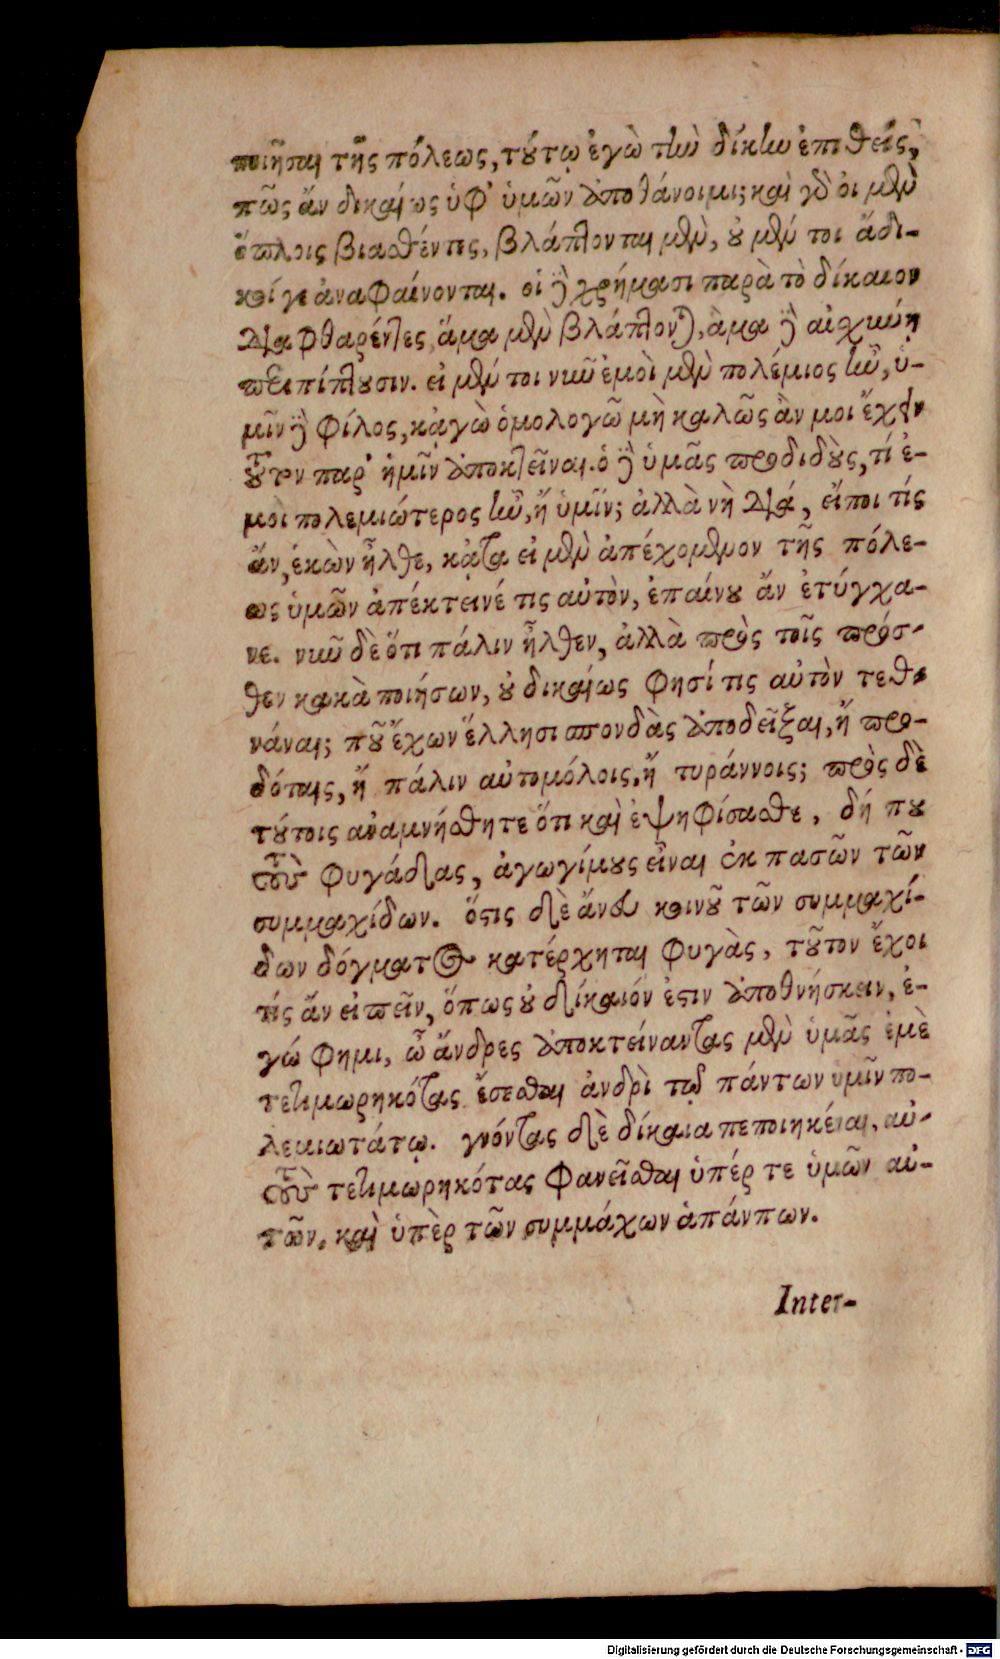 ποιῆσαι τῆς πόλεως, τούτῳ ἐγὼ τὴν δίκην ἐπιθεὶς,
πῶς ἂν δικαίως ὑφ' ὑμῶν ἀποθάνοιμι; καὶ γὰρ οἱ μὲν
ὅπλοις βιασθέντες, βλάπτονται μὲν, οὐ μέν τοι ἄδι-
κοί γε ἀναφαίνονται. οἱ δὲ χρήμασι παρὰ τὸ δίκαιον
διαφθαρέντες, ἅμα μὲν βλάπτονται, ἅμα δὲ αἰσχύνῃ
περιπίπτουσιν. εἰ μέν τοι νῦν ἐμοὶ μὲν πολέμιος ἦν, ὑ-
μῖν δὲ φίλος, κἀγὼ ὁμολογῶ μὴ καλῶς ἂν μοι ἔχειν
τοῦτον παρ' ἡμῖν ἀποκτεῖναι. ὁ δὲ ὑμᾶς προδιδοὺς, τί ἐ-
μοὶ πολεμιώτερος ἦν, ἢ ὑμῖν; ἀλλὰ νὴ Δία, εἴποι τίς
ἄν, ἑκὼν ἦλθε, κᾆτα εἰ μὲν ἀπεχόμενον τῆς πόλε-
ως ὑμῶν ἀπέκτεινέ τις αὐτὸν, ἐπαίνου ἂν ἐτύγχα-
νε. νῦν δὲ ὅτι πάλιν ἦλθεν, ἀλλὰ πρὸς τοῖς πρόσ-
θεν κακὰ ποιήσων, οὐ δικαίως φησί τις αὐτὸν τεθ-
νάναι; ποῦ ἔχων ἕλλησι σπονδὰς ἀποδεῖξαι, ἢ προ-
δόταις, ἢ πάλιν αὐτομόλοις, ἢ τυράννοις; πρὸς δὲ
τούτοις ἀναμνήσθητε ὅτι καὶ ἐψηφίσασθε, δή που
τοὺς φυγάδας, ἀγωγίμους εἶναι ἐκ πασῶν τῶν
συμμαχίδων. ὅστις δὲ ἄνευ κοινοῦ τῶν συμμαχί-
δων δόγματος κατέρχηται φυγὰς, τοῦτον ἔχοι
τίς ἂν εἰπεῖν, ὅπως οὐ δίκαιόν ἐστιν ἀποθνήσκειν, ἐ-
γώ φημι, ὦ ἄνδρες ἀποκτείναντας μὲν ὑμᾶς ἐμὲ
τετιμωρηκότας ἔσεσθαι ἀνδρὶ τῷ πάντων ὑμῖν πο-
λεμιωτάτῳ. γνόντας δὲ δίκαια πεποιηκέναι, αὐ-
τοὺς τετιμωρηκότας φανεῖσθαι ὑπέρ τε ὑμῶν αὐ-
τῶν, καὶ ὑπὲρ τῶν συμμάχων ἁπάντων.
Inter-
Digitalisierung gefördert durch die Deutsche Forschungsgemeinschaft - DFG